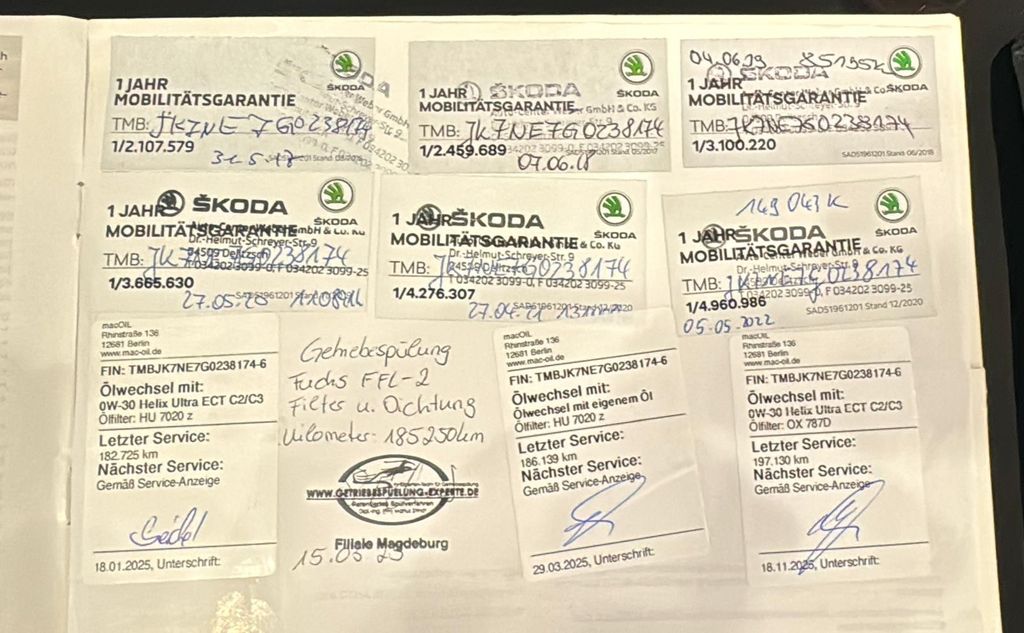 1 JAHR
MOBILITÄTSGARANTIE
ŠKODA
TMB: JK7NE7G0238174
1/2.107.579
31.5.17
1 JAHR
MOBILITÄTSGARANTIE
GmbH & Co. KG
ŠKODA
TMB: JK7NE7G0238174
1/2.459.689
07.06.18
04.06.19
ŠKODA
1 JAHR
MOBILITÄTSGARANTIE
ŠKODA
TMB:
1/3.100.220
SAD51961201 Stand 06/2018
1 JAHR
ŠKODA
ŠKODA
MOBILITÄTSGARANTIE
Dr.-Helmut-Schreyer-Str. 9
TMB: JK7NE7G0238174
T 034202 3099-0, F 034202 3099-25
1/3.665.630
27.05.20
1 JAHR
ŠKODA
ŠKODA
MOBILITÄTSGARANTIE
GmbH & Co. KG
Dr.-Helmut-Schreyer-Str. 9
TMB: JK7NE7G0238174
T 034202 3099-0, F 034202 3099-25
1/4.276.307
27.04.21
149 043 K
1 JAHR
ŠKODA
ŠKODA
MOBILITÄTSGARANTIE
& Co. KG
Dr.-Helmut-Schreyer-Str. 9
TMB: JK7NE7G0238174
T 034202 3099-0, F 034202 3099-25
1/4.960.986
SAD51961201 Stand 12/2020
05.05.2022
macOIL
Rhinstraße 136
12681 Berlin
www.mac-oil.de
FIN: TMBJK7NE7G0238174-6
Ölwechsel mit:
0W-30 Helix Ultra ECT C2/C3
Ölfilter: HU 7020 z
Letzter Service:
182.725 km
Nächster Service:
Gemäß Service-Anzeige
18.01.2025, Unterschrift:
Getriebespülung
Fuchs FFL-2
Filter u. Dichtung
Kilometer: 185250km
WWW.GETRIEBESPUELUNG-EXPERTE.DE
Filiale Magdeburg
macOIL
Rhinstraße 136
12681 Berlin
www.mac-oil.de
FIN: TMBJK7NE7G0238174-6
Ölwechsel mit:
Ölwechsel mit eigenem Öl
Ölfilter: HU 7020 z
Letzter Service:
186.139 km
Nächster Service:
Gemäß Service-Anzeige
29.03.2025, Unterschrift:
macOIL
Rhinstraße 136
12681 Berlin
www.mac-oil.de
FIN: TMBJK7NE7G0238174-6
Ölwechsel mit:
0W-30 Helix Ultra ECT C2/C3
Ölfilter: OX 787D
Letzter Service:
197.130 km
Nächster Service:
Gemäß Service-Anzeige
18.11.2025, Unterschrift: